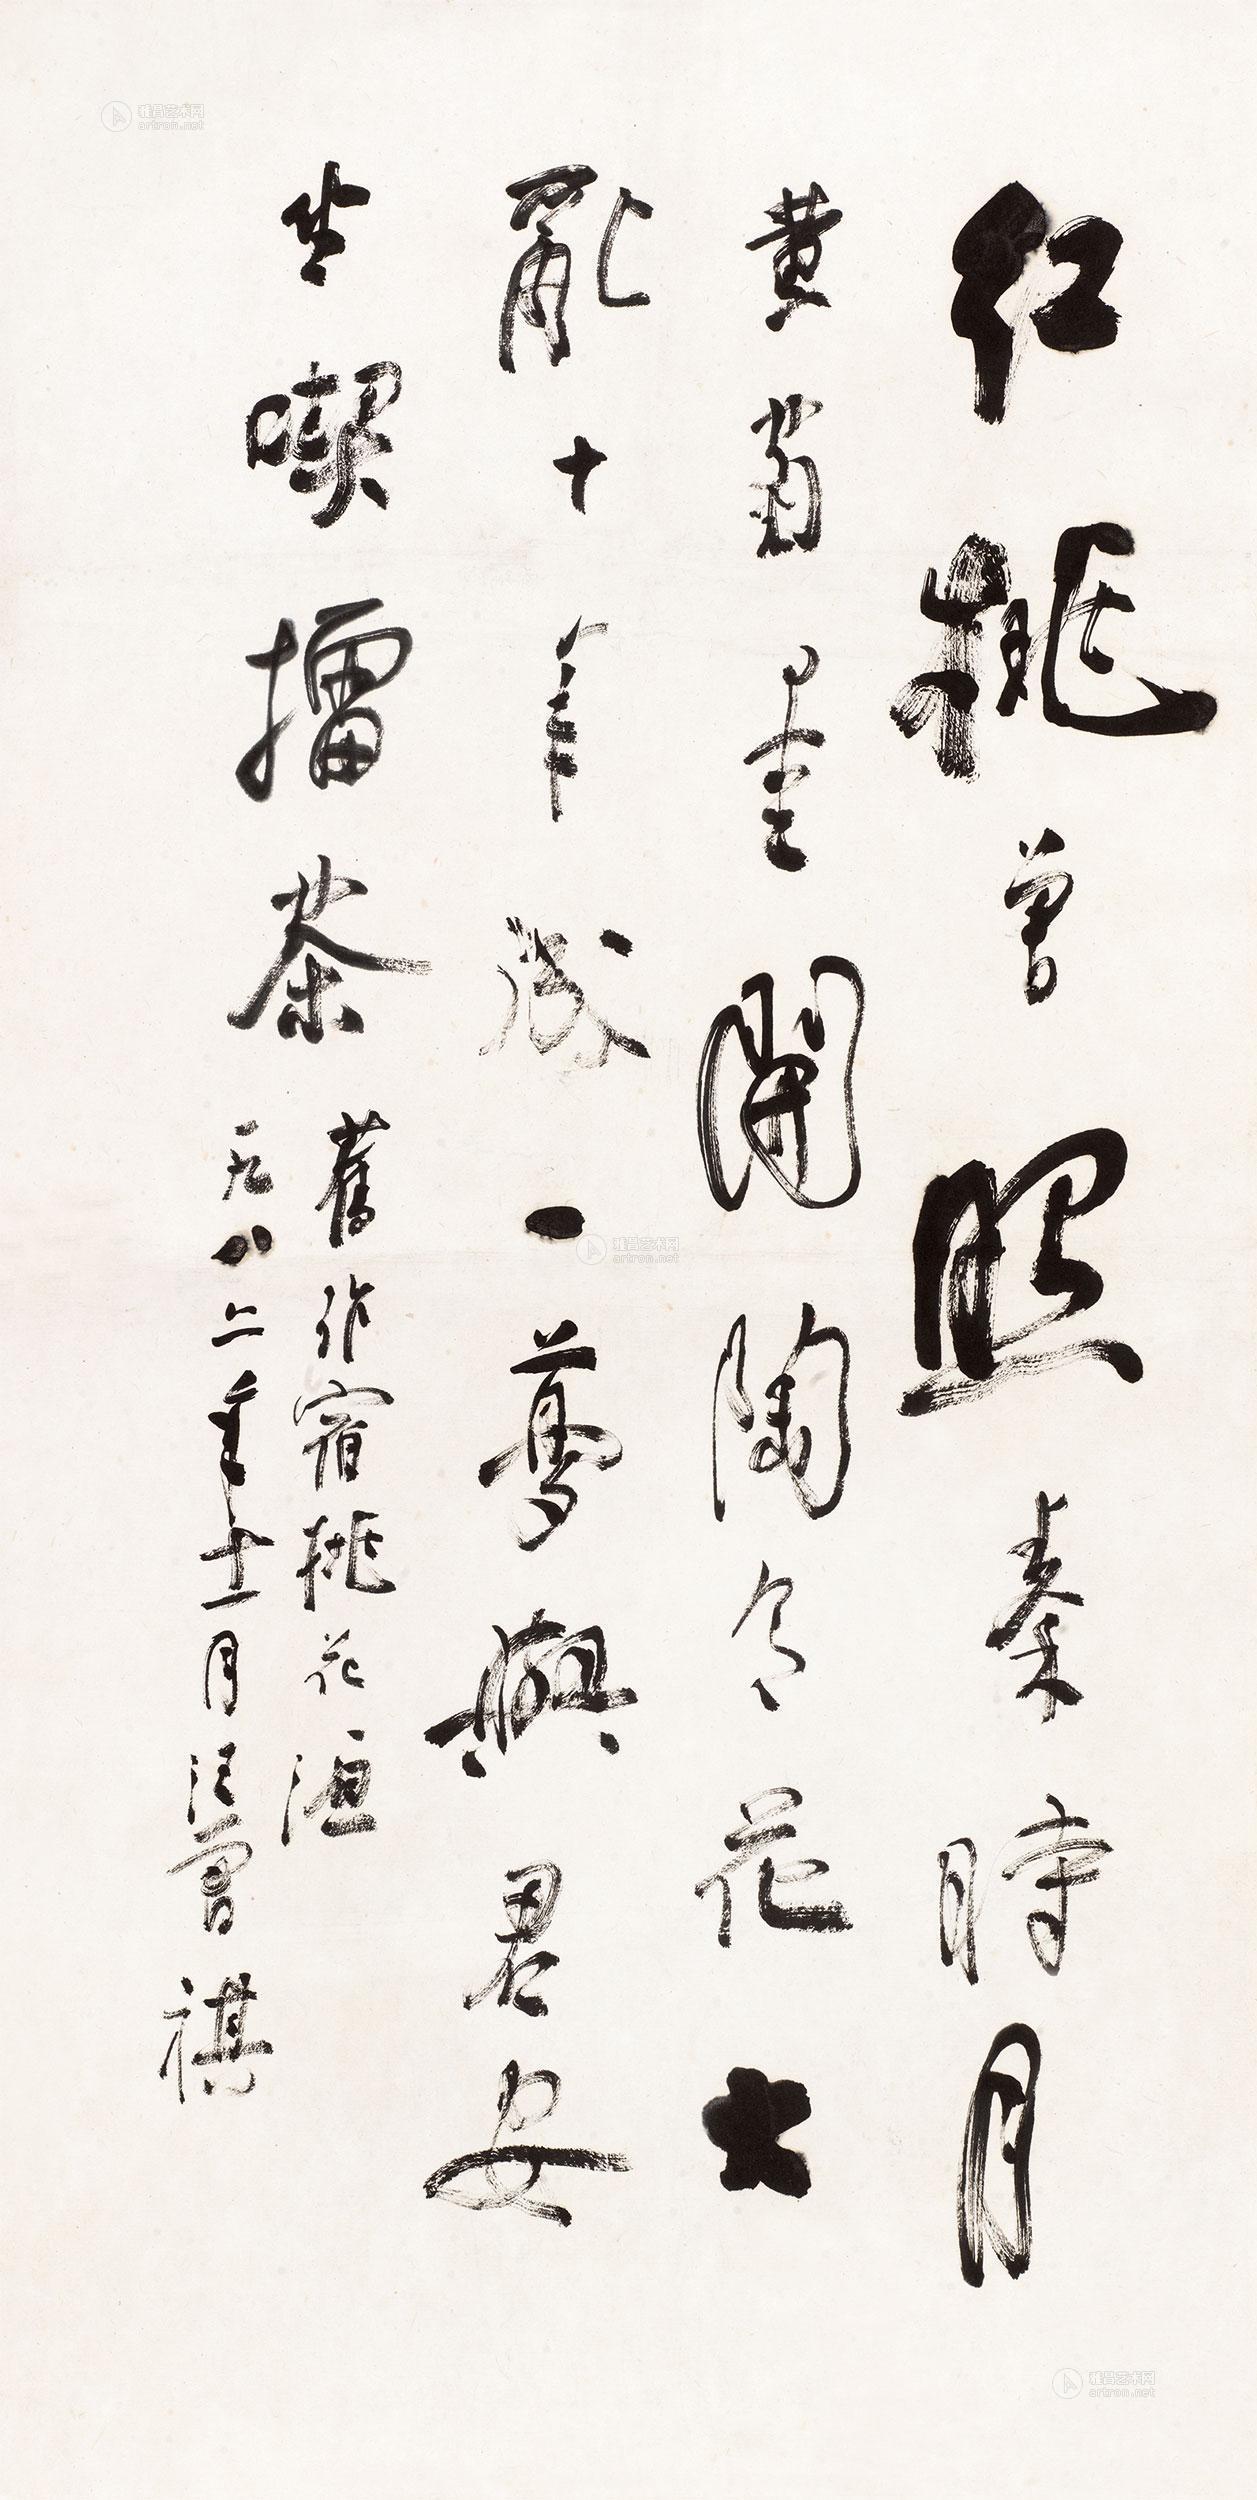 红桃曾照秦時月
黄菊重開陶令花大
亂十年成一夢與君安
坐喫擂茶
舊作宿桃花源
一九八二年十二月汪曾祺
雅昌艺术网
artron.net
雅昌艺术网
artron.net
雅昌艺术网
artron.net